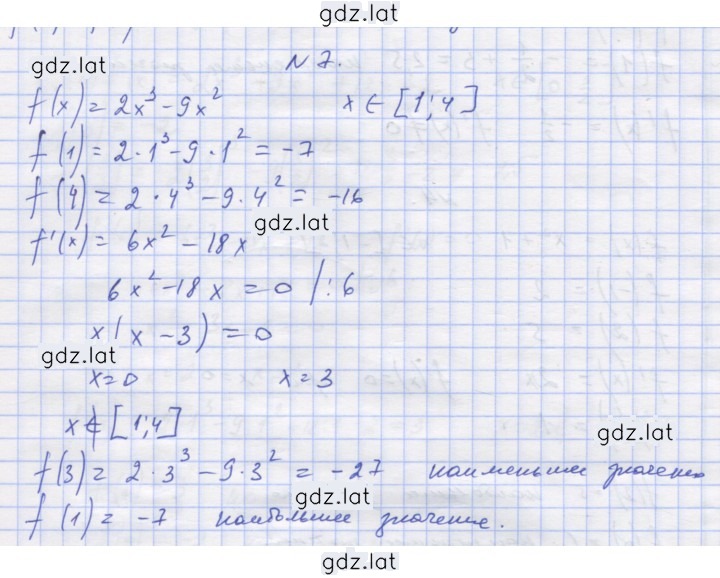 gdz.lat
gdz.lat
N 7.
f(x) = 2x³ - 9x² x ∈ [1; 4]
f(1) = 2 · 1³ - 9 · 1² = -7
f(4) = 2 · 4³ - 9 · 4² = -16
gdz.lat
f'(x) = 6x² - 18x
6x² - 18x = 0 / : 6
x(x - 3) = 0
gdz.lat
x = 0 x = 3
x ∉ [1; 4]
gdz.lat
f(3) = 2 · 3³ - 9 · 3² = -27 наименьшее значение
gdz.lat
f(1) = -7 наибольшее значение.
gdz.lat